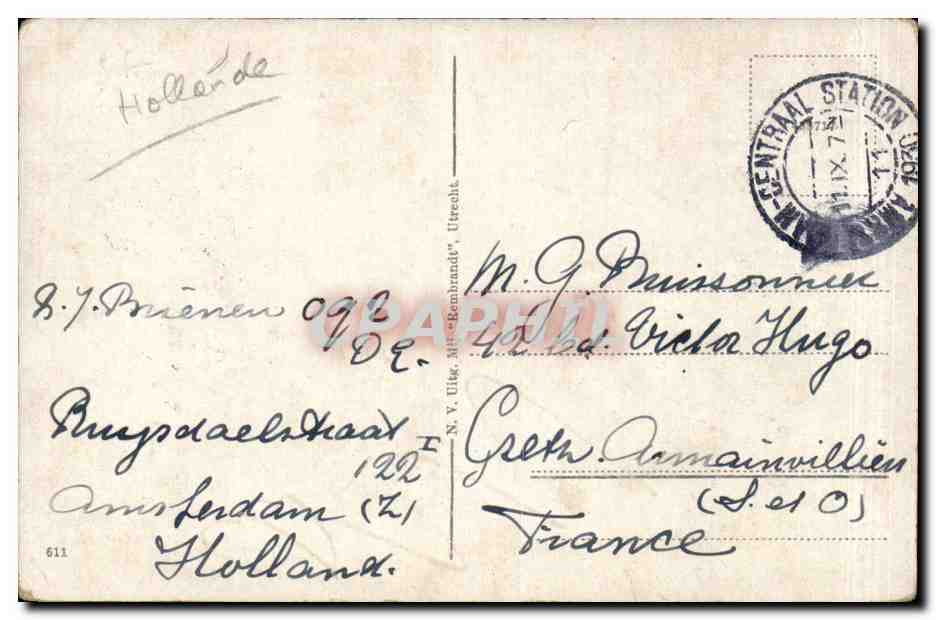 Hollande
CENTRAAL STATION 1920
11
N. V. Uitg. Mij. "Rembrandt", Utrecht.
CPARHI
092
DE.
Ruysdaelstraat I
122
Amsterdam (Z)
Holland.
611
M. G. Buissonnier
42 bd. Victor Hugo
Gretz. Armainvilliers
(S. et O)
France